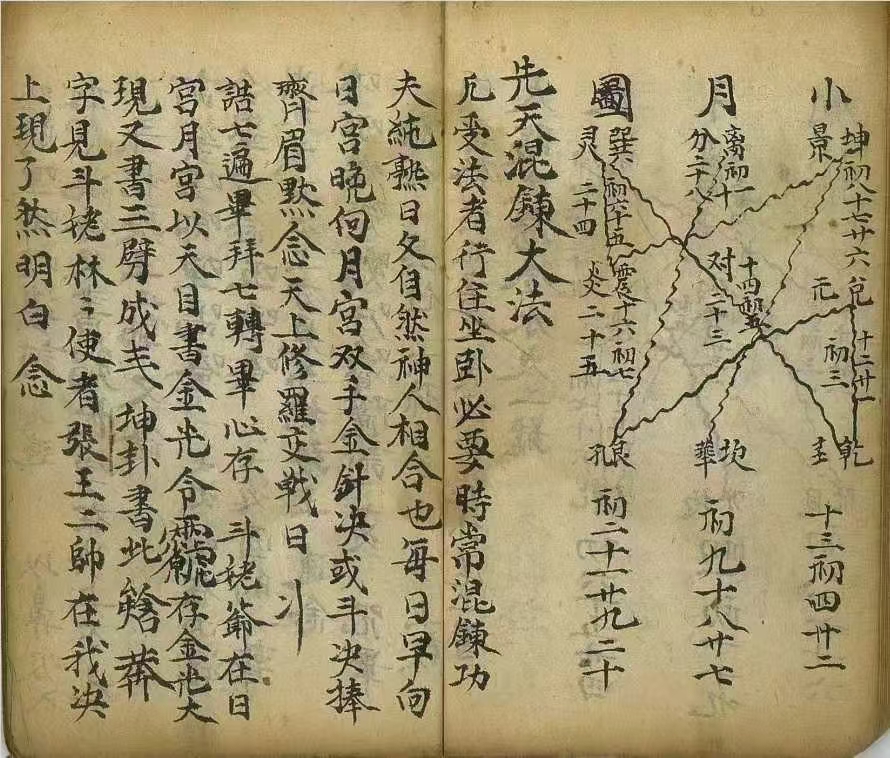 小
坤初八十七廿六
景
兌
元
十二廿一
初三
乾
圭
十三初四廿二
月
離初一
分二十八
初十
对
十四初五
二十三
坎
華
初九十八廿七
圖
巽
初六十五
灵
二十四
震十六初七
炎二十五
艮
孔
初二十一廿九二十
先天混鍊大法
凡受法者行住坐卧必要時常混鍊功
夫純熟日久自然神人相合也每日早向
日宮晚向月宮双手金針决或斗决捧
齊眉默念天上修羅交戦日
誥七遍畢拜七轉畢心存 斗姥爺在日
宮月宮以天目書金光令存金光大
現又書三劈成坤卦書此
字見斗姥林二使者張王二帥在我决
上現了然明白念